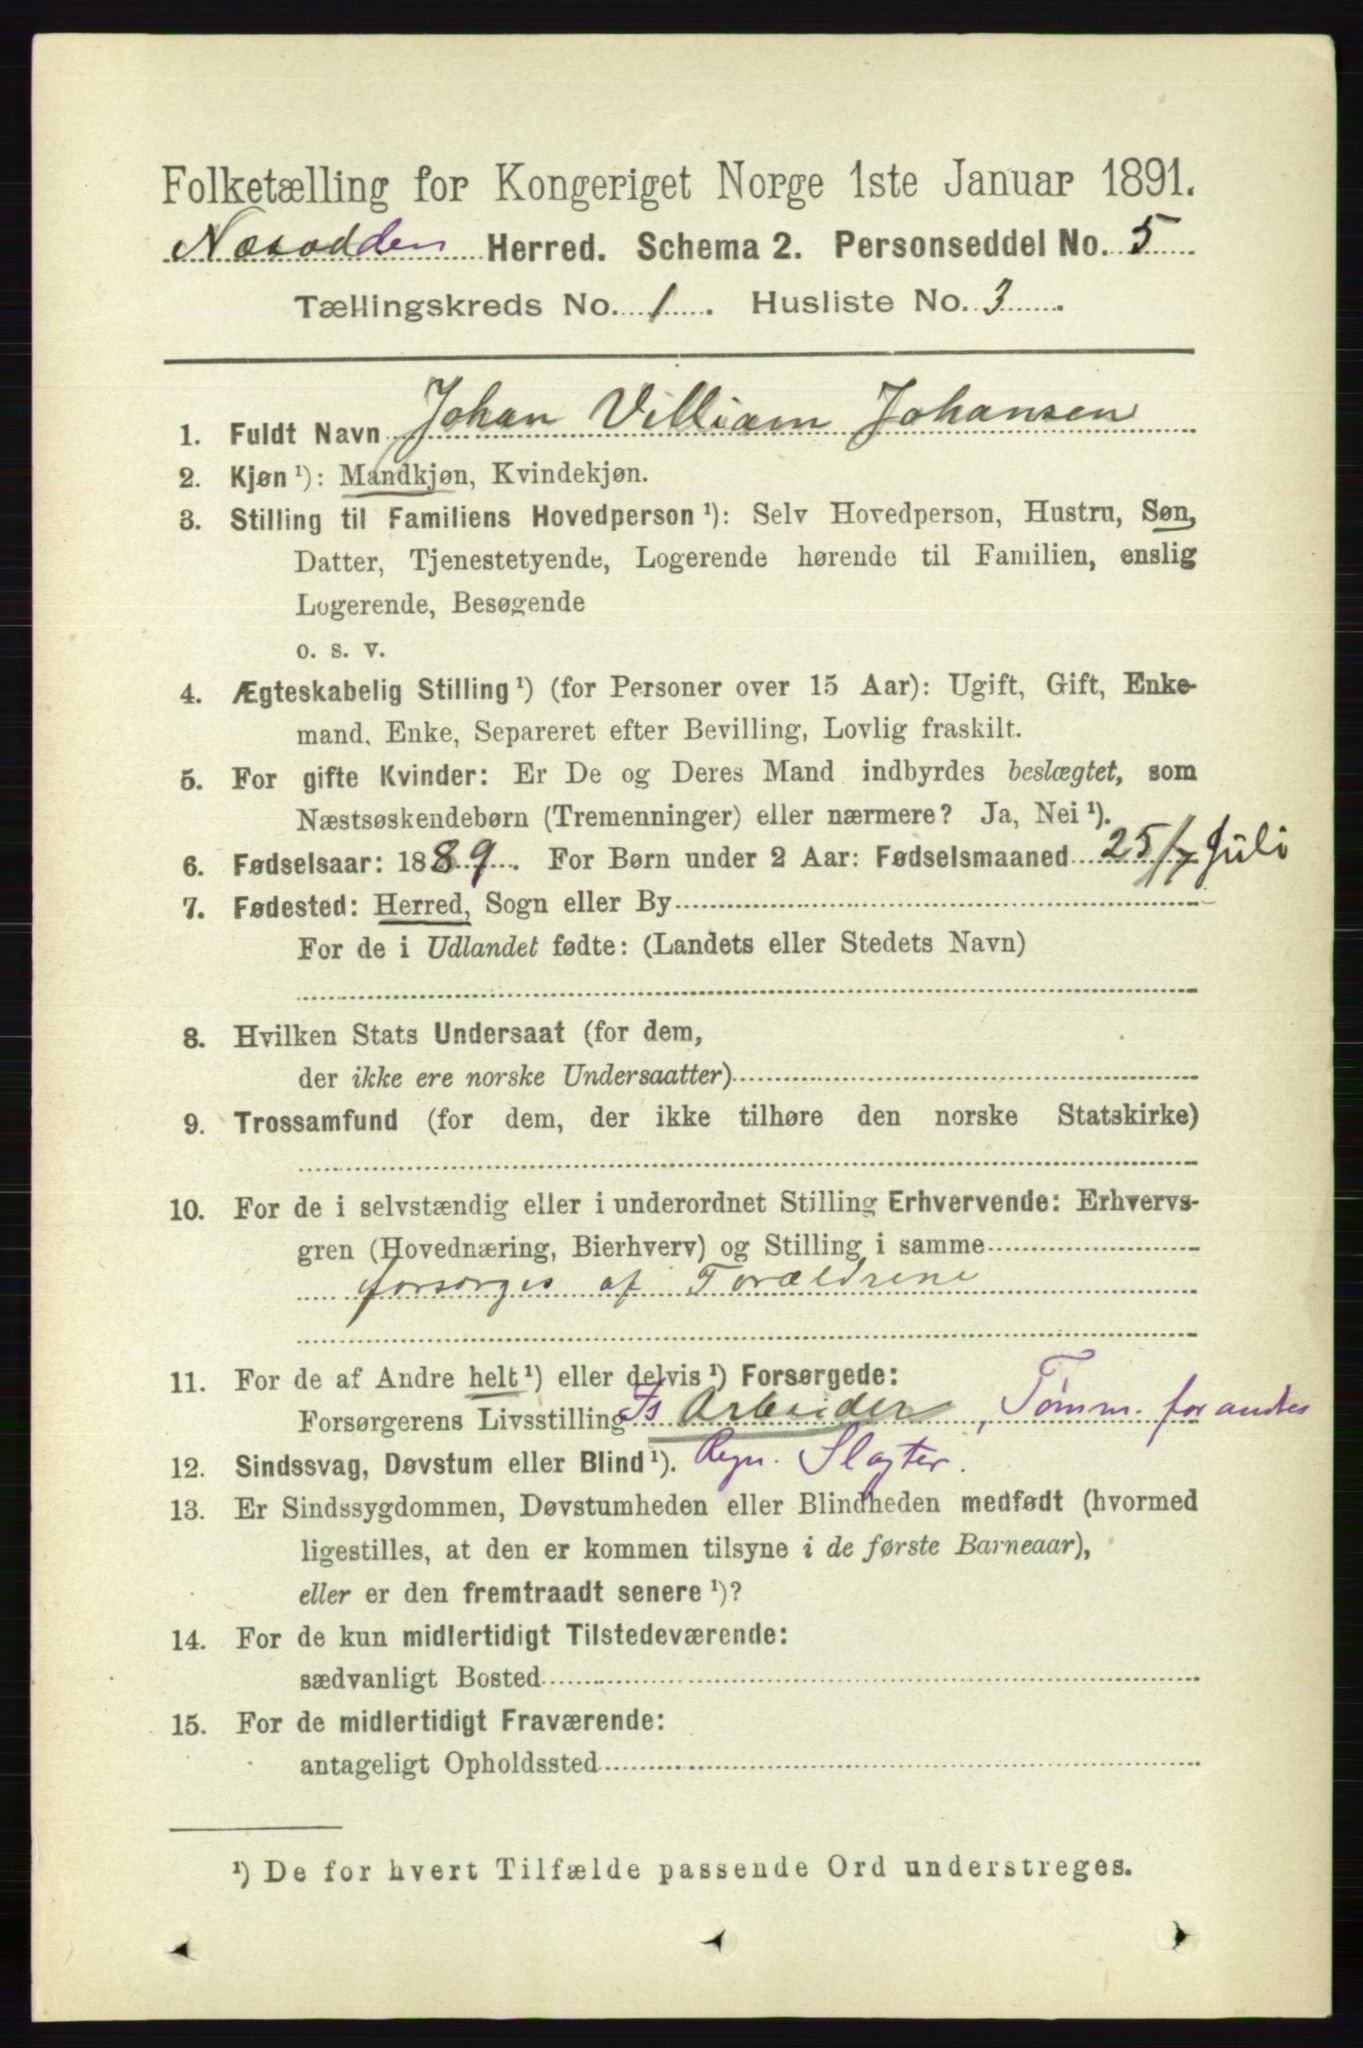 Folketælling for Kongeriget Norge 1ste Januar 1891.
Næsodden Herred. Schema 2. Personseddel No. 5
Tællingskreds No. 1. Husliste No. 3.
1. Fuldt Navn Johan Villiam Johansen
2. Kjøn ¹): Mandkjøn, Kvindekjøn.
3. Stilling til Familiens Hovedperson ¹): Selv Hovedperson, Hustru, Søn,
Datter, Tjenestetyende, Logerende hørende til Familien, enslig
Logerende, Besøgende
o. s. v.
4. Ægteskabelig Stilling ¹) (for Personer over 15 Aar): Ugift, Gift, Enke-
mand, Enke, Separeret efter Bevilling, Lovlig fraskilt.
5. For gifte Kvinder: Er De og Deres Mand indbyrdes beslægtet, som
Næstsøskendebørn (Tremenninger) eller nærmere? Ja, Nei ¹).
6. Fødselsaar: 1889. For Børn under 2 Aar: Fødselsmaaned 25/7 Juli
7. Fødested: Herred, Sogn eller By
For de i Udlandet fødte: (Landets eller Stedets Navn)
8. Hvilken Stats Undersaat (for dem,
der ikke ere norske Undersaatter)
9. Trossamfund (for dem, der ikke tilhøre den norske Statskirke)
10. For de i selvstændig eller i underordnet Stilling Erhvervende: Erhvervs-
gren (Hovednæring, Bierhverv) og Stilling i samme
forsørges af Forældrene
11. For de af Andre helt ¹) eller delvis ¹) Forsørgede:
Forsørgerens Livsstilling Fs Arbeider, Tømm. for andres
Regn. Slagter.
12. Sindssvag, Døvstum eller Blind ¹).
13. Er Sindssygdommen, Døvstumheden eller Blindheden medfødt (hvormed
ligestilles, at den er kommen tilsyne i de første Barneaar),
eller er den fremtraadt senere ¹)?
14. For de kun midlertidigt Tilstedeværende:
sædvanligt Bosted
15. For de midlertidigt Fraværende:
antageligt Opholdssted
¹) De for hvert Tilfælde passende Ord understreges.